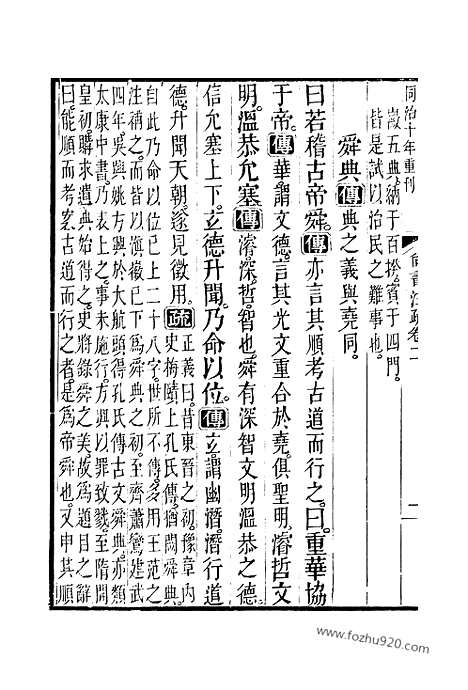 同治十年重刊
尚書注疏卷二
二
徽五典納于百揆賓于四門
皆是試以治民之難事也
舜典傳典之義與堯同
曰若稽古帝舜傳亦言其順考古道而行之曰重華協
于帝傳華謂文德言其光文重合於堯俱聖明濬哲文
明溫恭允塞傳濬深哲智也舜有深智文明溫恭之德
信允塞上下玄德升聞乃命以位傳玄謂幽潛潛行道
德升聞天朝遂見徵用疏正義曰昔東晉之初豫章內
史梅賾上孔氏傳猶闕舜典
自此乃命以位已上二十八字世所不傳多用王范之
注補之而皆以愼徽已下爲舜典之初至齊蕭鸞建武
四年吳興姚方興於大航頭得孔氏傳古文舜典亦類
太康中書乃表上之事未施行方興以罪致戮至隋開
皇初購求遺典始得之史將錄舜之美故爲題目之辭
曰能順而考案古道而行之者是爲帝舜也又申其順
www.fozhu920.com